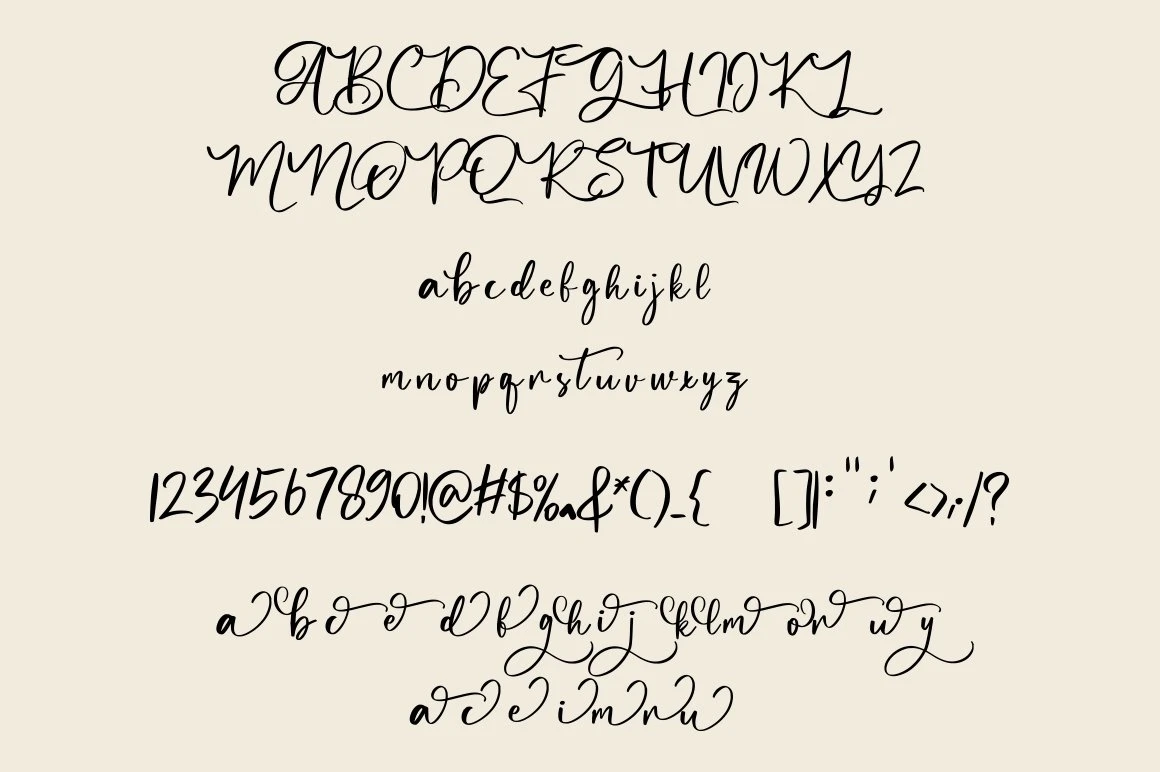 ABCDEFGHIJKL
MNOPQRSTUVWXYZ
abcdefghijkl
mnopqrstuvwxyz
1234567890!@#$%^&*()_-{ []|:";'<>,./?
a b c e d f g h i j k l m o n u y
a c e i m r u